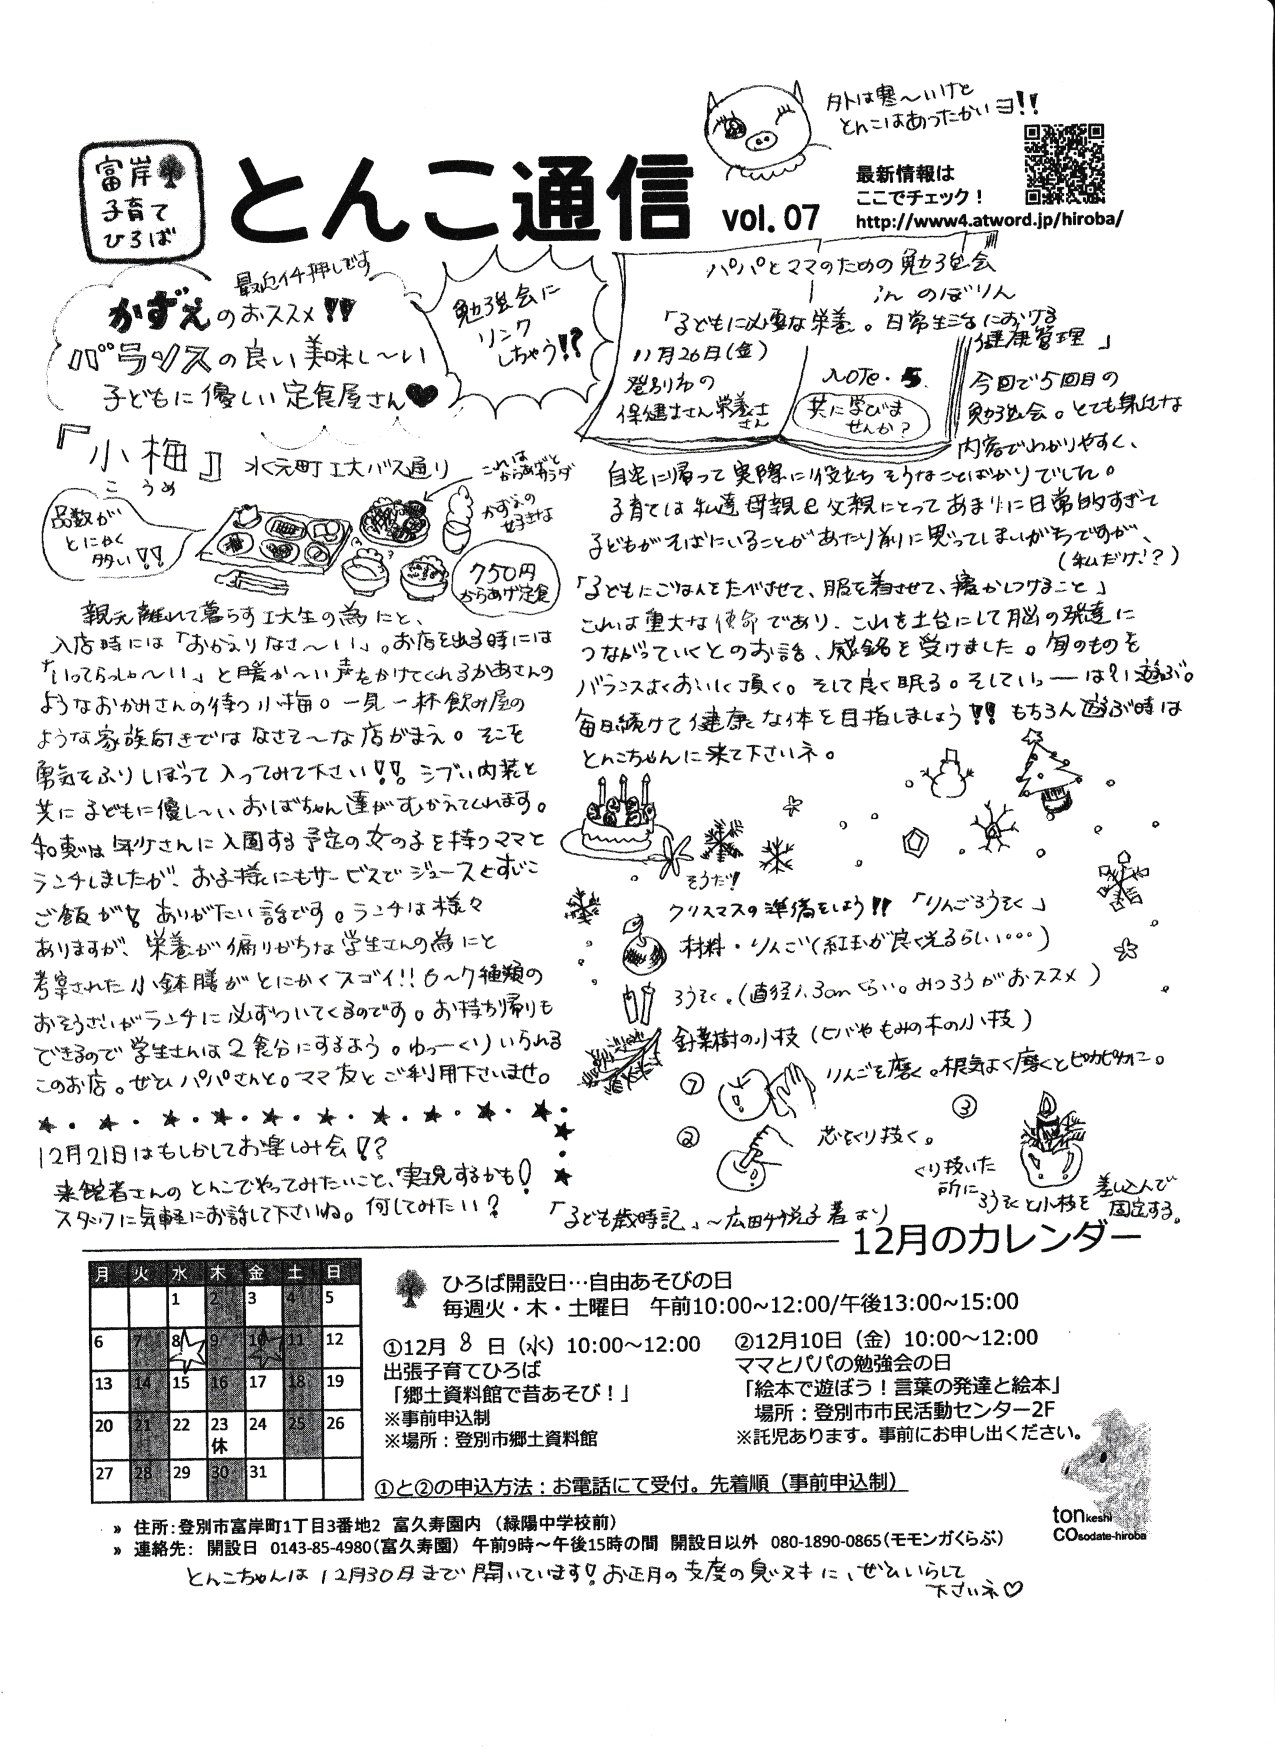 外は寒〜いけど
とんこはあったかいヨ!!
富岸
子育て
ひろば
とんこ通信
vol. 07
最新情報は
ここでチェック！
http://www4.atword.jp/hiroba/
最近イチ押しです
かずえのおススメ!!
バランスの良い美味し〜い
子どもに優しい定食屋さん♥
勉強会に
リンク
しちゃう!?
『小梅』 水元町工大バス通り
こうめ
品数が
とにかく
多い!!
これは
からあげと
サラダ
かずえの
好きな
750円
からあげ定食
親元離れて暮らす工大生の為にと、
入店時には「おかえりなさ〜い」。お店を出る時には
「いってらっしゃ〜い」と暖か〜い声をかけてくれるかあさんの
ようなおかみさんの待つ小梅。一見一杯飲み屋の
ような家族向きではなさそ〜な店がまえ。そこを
勇気をふりしぼって入ってみて下さい!! シブい内装と
共に子どもに優し〜いおばちゃん達がむかえてくれます。
和恵は年少さんに入園する予定の女の子を持つママと
ランチしましたが、お子様にもサービスでジュースとすじこ
ご飯が!! ありがたい話です。ランチは様々
ありますが、栄養が偏りがちな学生さんの為にと
考案された小鉢膳がとにかくスゴイ!! 6〜7種類の
おそうざいがランチに必ずついてくるのです。お持ち帰りも
できるので学生さんは2食分にするよう。ゆっーくりいられる
このお店。ぜひパパさんと。ママ友とご利用下さいませ。
12月21日はもしかしてお楽しみ会!?
来館者さんのとんこでやってみたいこと、実現するかも!
スタッフに気軽にお話して下さいね。何してみたい？
パパとママのための勉強会
in のぼりん
「子どもに必要な栄養。日常生活における
健康管理」
11月26日(金)
登別市の
保健士さん栄養士
さん
NOTE・5.
共に学びま
せんか？
今回で5回目の
勉強会。とても身近な
内容でわかりやすく、
自宅に帰って実際に役立ちそうなことばかりでした。
子育ては私達母親や父親にとってあまりに日常的すぎて
子どもがそばにいることがあたり前に思ってしまいがちですが、
(私だけ!?)
「子どもにごはんをたべさせて、服を着させて、寝かしつけること」
これは重大な使命であり、これを土台にして脳の発達に
つながっていくとのお話、感銘を受けました。旬のものを
バランスよくおいしく頂く。そして良く眠る。そしていっーぱい遊ぶ。
毎日続けて健康な体を目指しましょう!! もちろん遊ぶ時は
とんこちゃんに来て下さいネ。
そうだ!
クリスマスの準備をしよう!! 「りんごろうそく」
材料・りんご(紅玉が良く光るらしい…)
ろうそく。(直径1.3cmくらい。みつろうがおススメ)
針葉樹の小枝(ヒバやもみの木の小枝)
① りんごを磨く。根気よく磨くとピカピカに。
② 芯をくり抜く。
③
くり抜いた
所にろうそくと小枝を差し込んで
固定する。
「子ども歳時記」〜広田千悦子著より
12月のカレンダー
月 火 水 木 金 土 日
1 2 3 4 5
6 7 8 9 10 11 12
13 14 15 16 17 18 19
20 21 22 23 24 25 26
休
27 28 29 30 31
ひろば開設日…自由あそびの日
毎週火・木・土曜日 午前10:00~12:00/午後13:00~15:00
①12月 8 日（水）10:00~12:00
出張子育てひろば
「郷土資料館で昔あそび！」
※事前申込制
※場所：登別市郷土資料館
②12月10日（金）10:00~12:00
ママとパパの勉強会の日
「絵本で遊ぼう！言葉の発達と絵本」
場所：登別市市民活動センター2F
※託児あります。事前にお申し出ください。
①と②の申込方法：お電話にて受付。先着順（事前申込制）
tonkeshi
COsodate-hiroba
» 住所:登別市富岸町1丁目3番地2 富久寿園内 （緑陽中学校前）
» 連絡先: 開設日 0143-85-4980(富久寿園) 午前9時～午後15時の間 開設日以外 080-1890-0865(モモンガくらぶ)
とんこちゃんは12月30日まで開いています! お正月の支度の息ヌキに、ぜひいらして
下さいネ♡